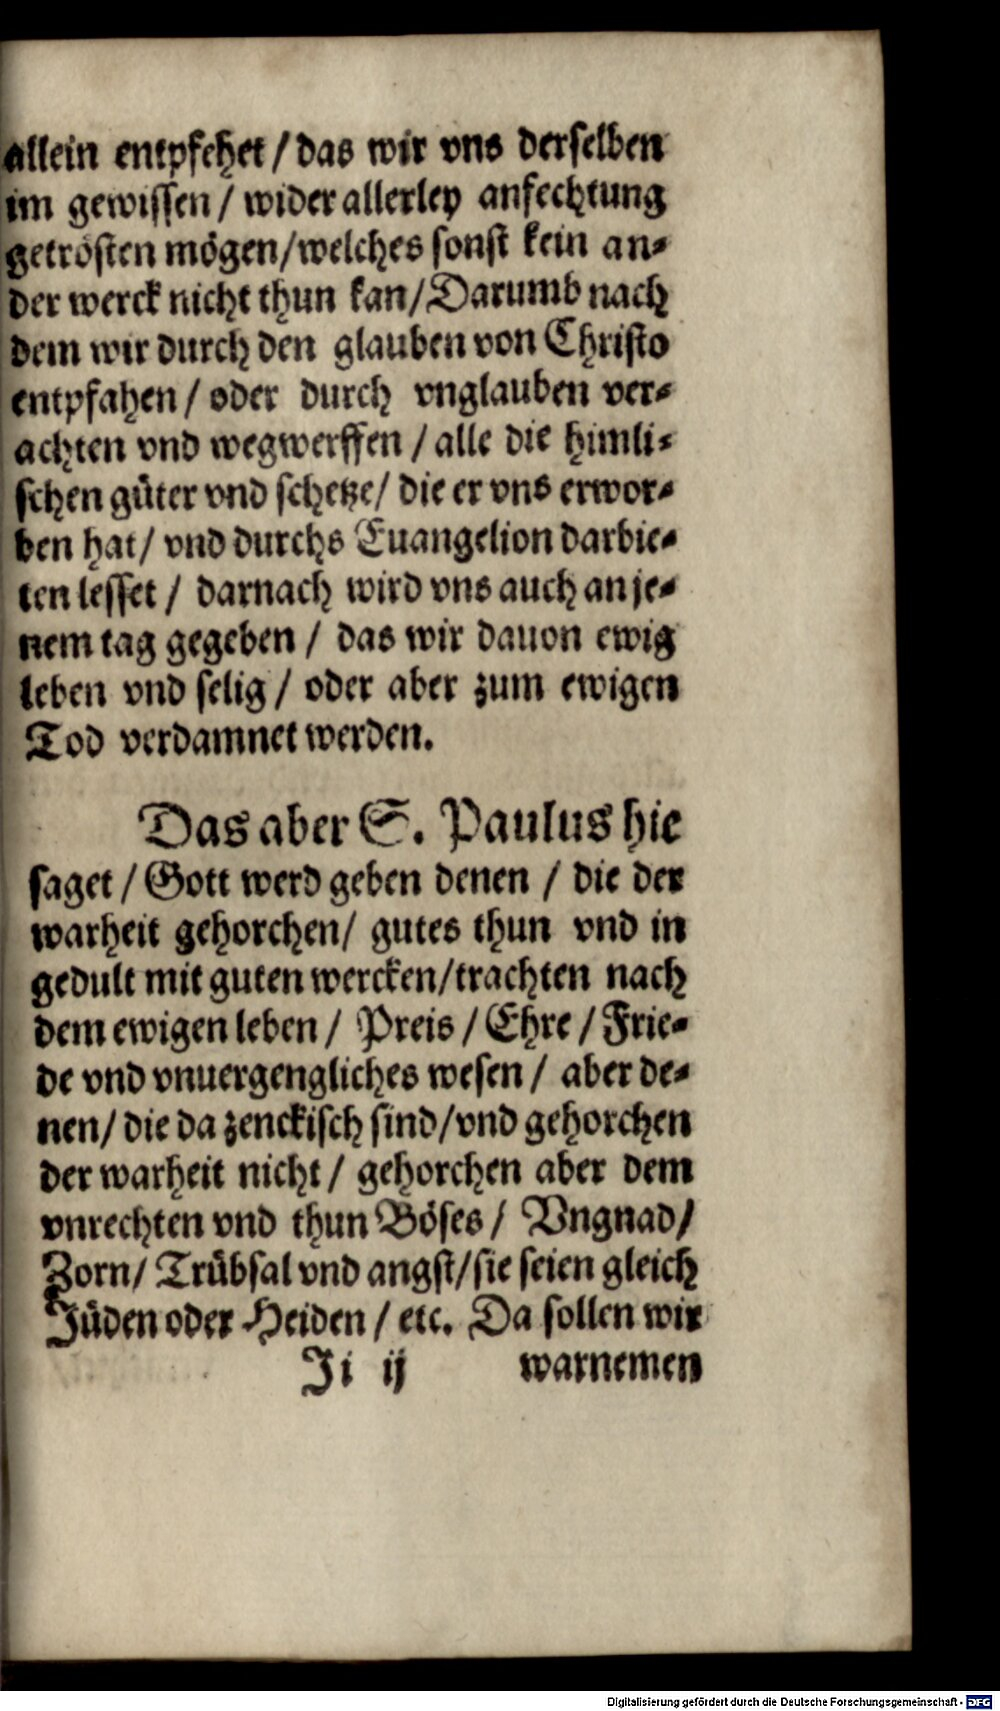 allein entpfehet / das wir vns derselben
im gewissen / wider allerley anfechtung
getrösten mögen / welches sonst kein an⸗
der werck nicht thun kan / Darumb nach
dem wir durch den glauben von Christo
entpfahen / oder durch vnglauben ver⸗
achten vnd wegwerffen / alle die himli⸗
schen güter vnd schetze / die er vns erwor⸗
ben hat / vnd durchs Euangelion darbie⸗
ten lesset / darnach wird vns auch an je⸗
nem tag gegeben / das wir dauon ewig
leben vnd selig / oder aber zum ewigen
Tod verdamnet werden.
Das aber S. Paulus hie
saget / Gott werd geben denen / die der
warheit gehorchen / gutes thun vnd in
gedult mit guten wercken / trachten nach
dem ewigen leben / Preis / Ehre / Frie⸗
de vnd vnuergengliches wesen / aber de⸗
nen / die da zenckisch sind / vnd gehorchen
der warheit nicht / gehorchen aber dem
vnrechten vnd thun Böses / Vngnad /
Zorn / Trübsal vnd angst / sie seien gleich
Jüden oder Heiden / etc. Da sollen wir
Ji ij warnemen
Digitalisierung gefördert durch die Deutsche Forschungsgemeinschaft - DFG